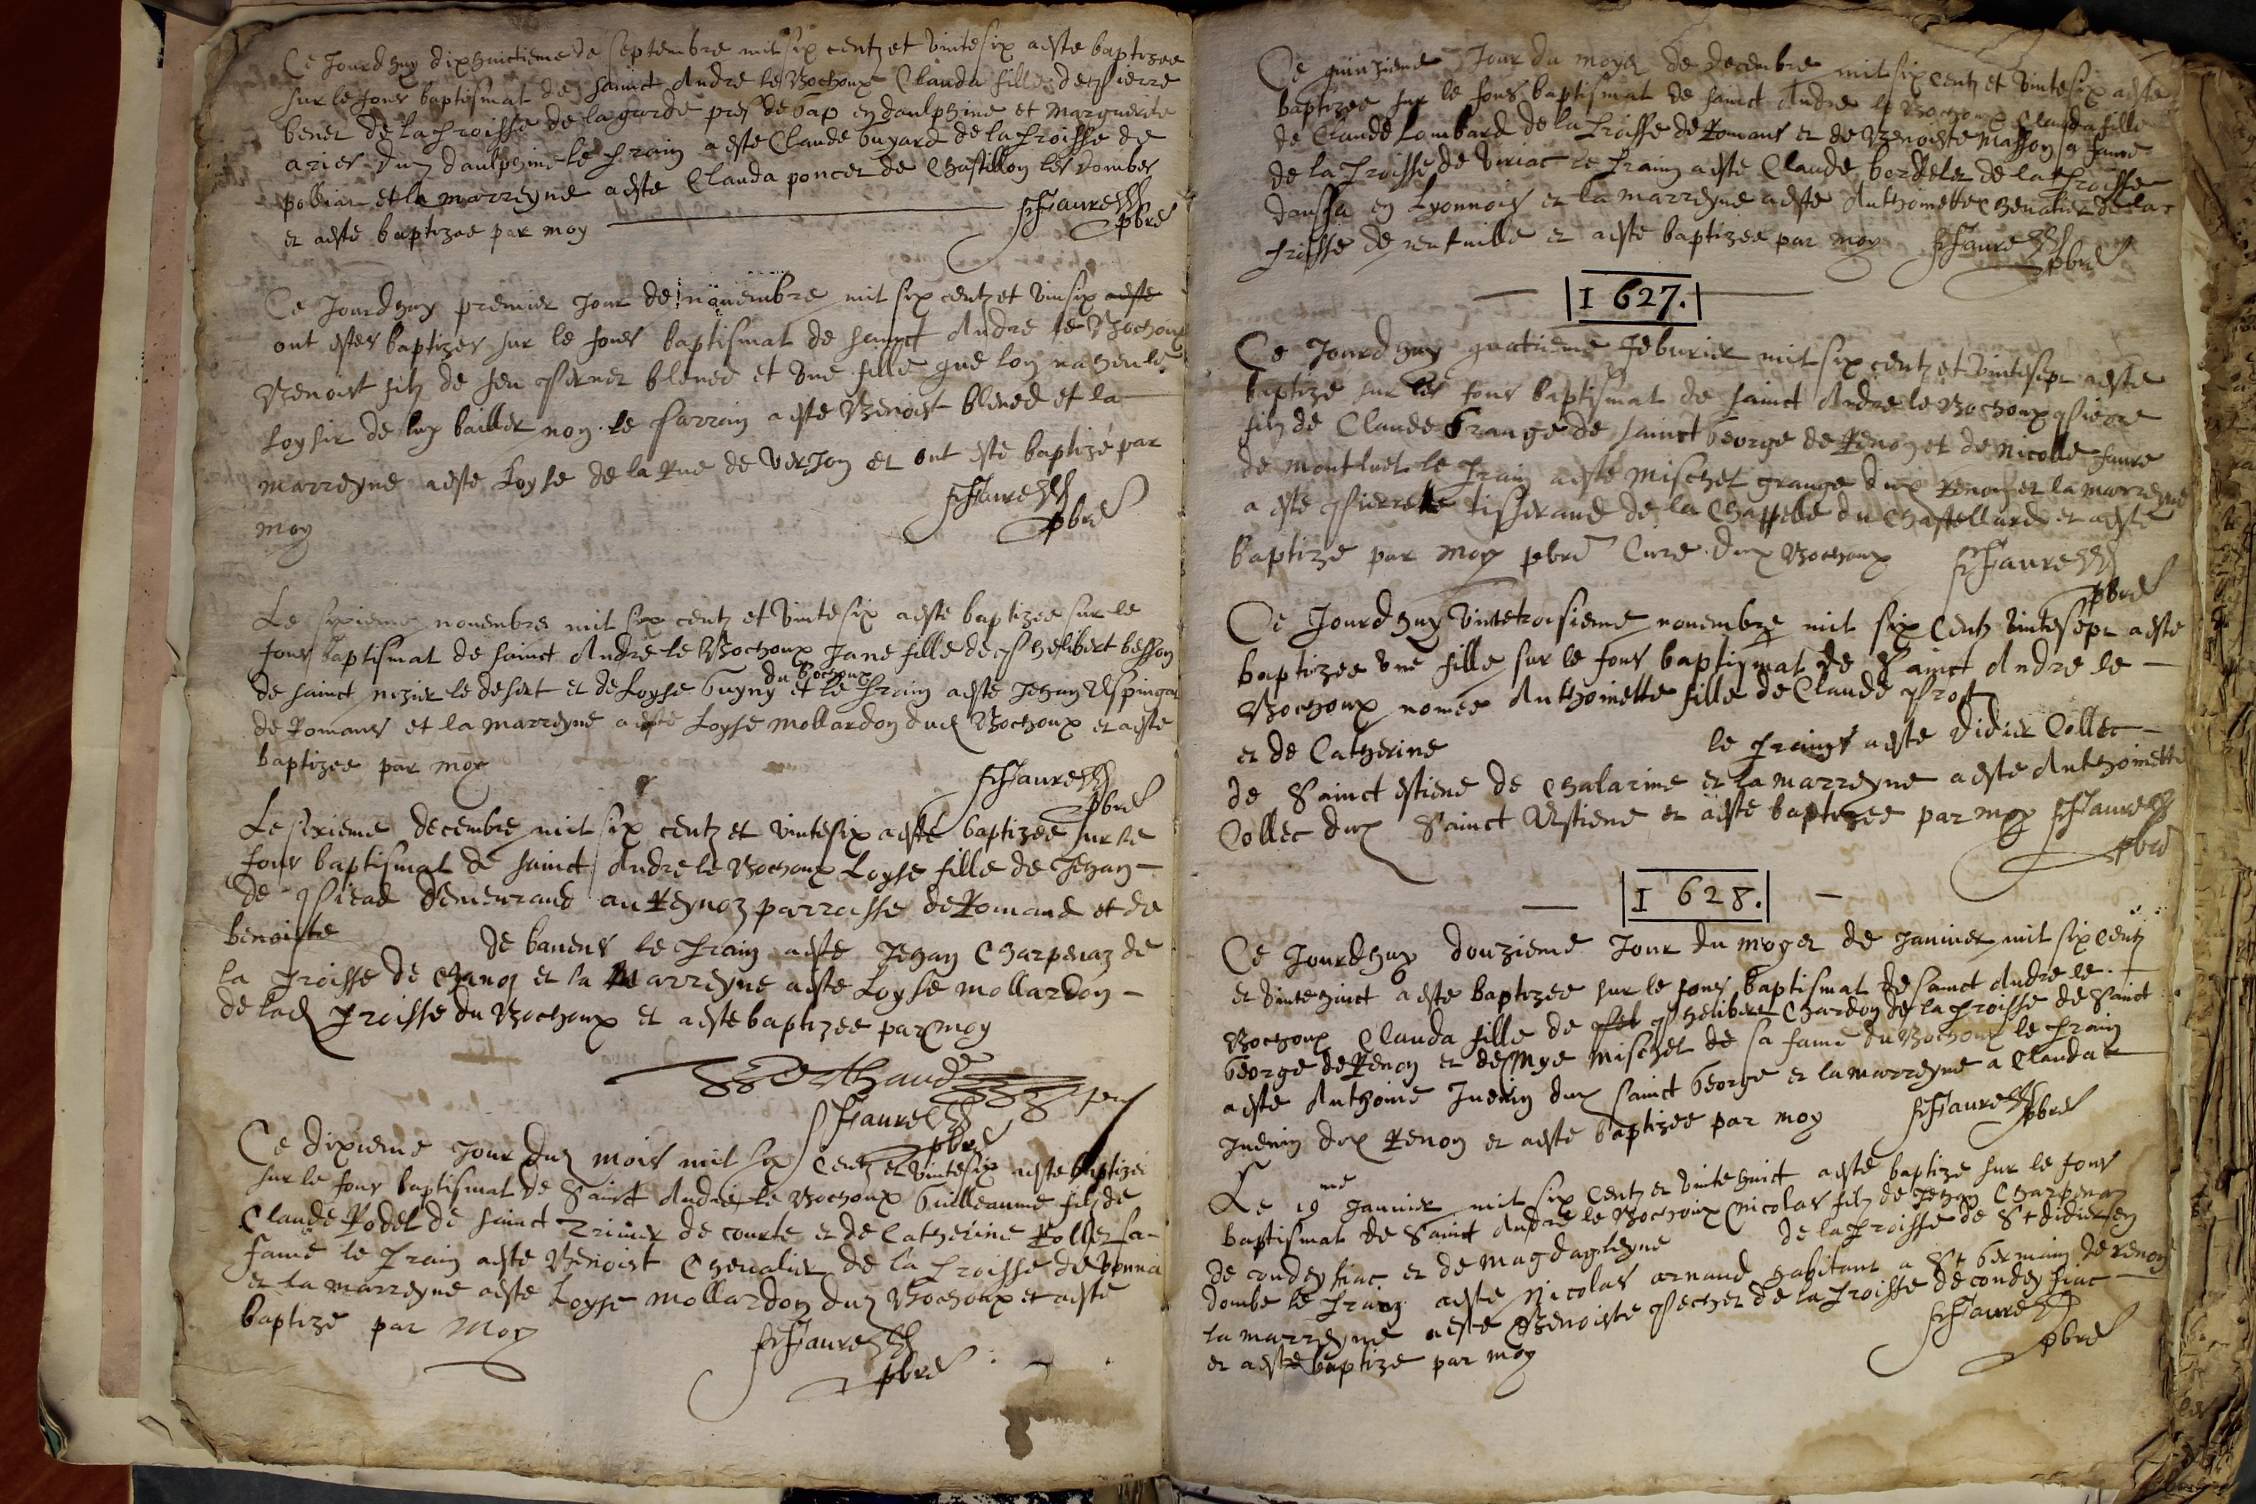 Ce Jourdhuy dixhuictieme de septembre mil six centz et vintesix aeste baptizee
sur le fons baptismal de sainct Andre le Bochoux Clauda fille de Pierre
benet de la proisse de lagarde pres de Gap en daulphine et Marguerite
aries dud daulphine le prain aeste Claude buyard de la proisse de
polliat et la marreyne aeste Clauda poncet de Chastillon les dombes
et aeste baptizee par moy
F Faure
pbre
Ce Jourdhuy premier jour de novembre mil six centz et vinsix aeste
ont estes baptizes sur le fons baptismal de sainct Andre le Bochoux
Benoist filz de feu Pernet blened et une fille que lon na heu le
loysir de luy bailler non le parrain aeste Benoist blened et la
marreyne aeste Loyse de la Rue de Verjon et ont esté baptizé par
moy
F Faure
pbre
Le sixieme novembre mil six centz et vintesix aeste baptizee sur le
fons baptismal de sainct Andre le Bochoux Jane fille de Phelibert besson
de sainct nizier le desert et de Loyse Guyny du Bochoux et le prain aeste Jehan Espingat
de Romans et la marreyne aeste Loyse mollardon dud Bochoux et aeste
baptizee par moy
F Faure
pbre
Le sixieme decembre mil six centz et vintesix aesté baptizee sur le
fons baptismal de sainct Andre le Bochoux Loyse fille de Jehan
de Piead demeurand au Reynoz parroisse de Romand et de
benoiste de banens le prain aeste Jehan Charpenaz de
la proisse de Chanoz et la Marreyne aeste Loyse mollardon
de lad proisse du Bochoux et aeste baptizee par moy
F Faure
pbre
Ce dixieme jour dud mois mil six centz et vintesix aeste baptizé
sur le fons baptismal de Sainct Andre le Bochoux Guilleaume filz de
Claude Rodet de sainct Trivier de courte et de Catherine Rollet sa
fame le prain aeste Benoist Chevalier de la proisse de Vonna
et la marreyne aeste Loyse mollardon dud Bochoux et aeste
baptizé par Moy
F Faure
pbre
Ce quinzieme Jour du moys de decembre mil six centz et vintesix aeste
baptizee sur le fons baptismal de sainct Andre le Bochoux Clauda fille
de Claude Lombard de la proisse de Romans et de Benoiste Masson sa fame
de la proisse de Viriac le prain aeste Claude bordelet de la proisse
dansa en Lyonnois et la marreyne aeste Anthoinette Chevalier de la
proisse de et aeste baptizee par moy
F Faure
pbre
1627.
Ce Jourdhuy quatrieme febvrier mil six centz et vintesept aeste
baptizé sur les fons baptismal de sainct Andre le Bochoux Pierre
filz de Claude Grange de sainct George de Renon et de Nicolle faure
de montluel le prain aeste Mischel grange dud Renon et la marreyne
a este Pierrette tisserand de la Chappelle du Chastellard et aeste
baptizé par moy pbre Curé dud Bochoux
F Faure
pbre
Ce Jourdhuy vintetroisieme novembre mil six centz vintesept aeste
baptizee une fille sur le fons baptismal de Sainct Andre le
Bochoux nomee Anthoinette fille de Claude Prost
et de Catherine le prains aeste Didier Collec
de Sainct estiene de Chalarine et la marreyne aeste Anthoinette
Collec dud Sainct Estiene et aeste baptizee par moy
F Faure
pbre
1628.
Ce Jourdhuy douzieme Jour du moyet de janvier mil six centz
et vintehuict aeste baptizee sur le fons baptismal de sainct Andre le
Bochoux Clauda fille de Phelibert Chardon de la proisse de Sainct
George de Renon et de Mye Mischel de sa fame du Bochoux le prain
aeste Anthoine Juenin dud Sainct George et la marreyne a Clauda
Juenin dud Renon et aeste baptizee par moy
F Faure
pbre
Le 19me Janvier mil six centz et vintehuict aesté baptizé sur le fons
baptismal de Sainct Andre le Bochoux Nicolas filz de Jehan Charpenaz
de condeysiac et de Magdagleyne de la proisse de St didier en
dombe le prain aeste Nicolas arnaud habitant a St Germain de renon
la marreyne aeste Benoiste Pechet de la proisse de condeysiac
et aeste baptizé par moy
F Faure
pbre